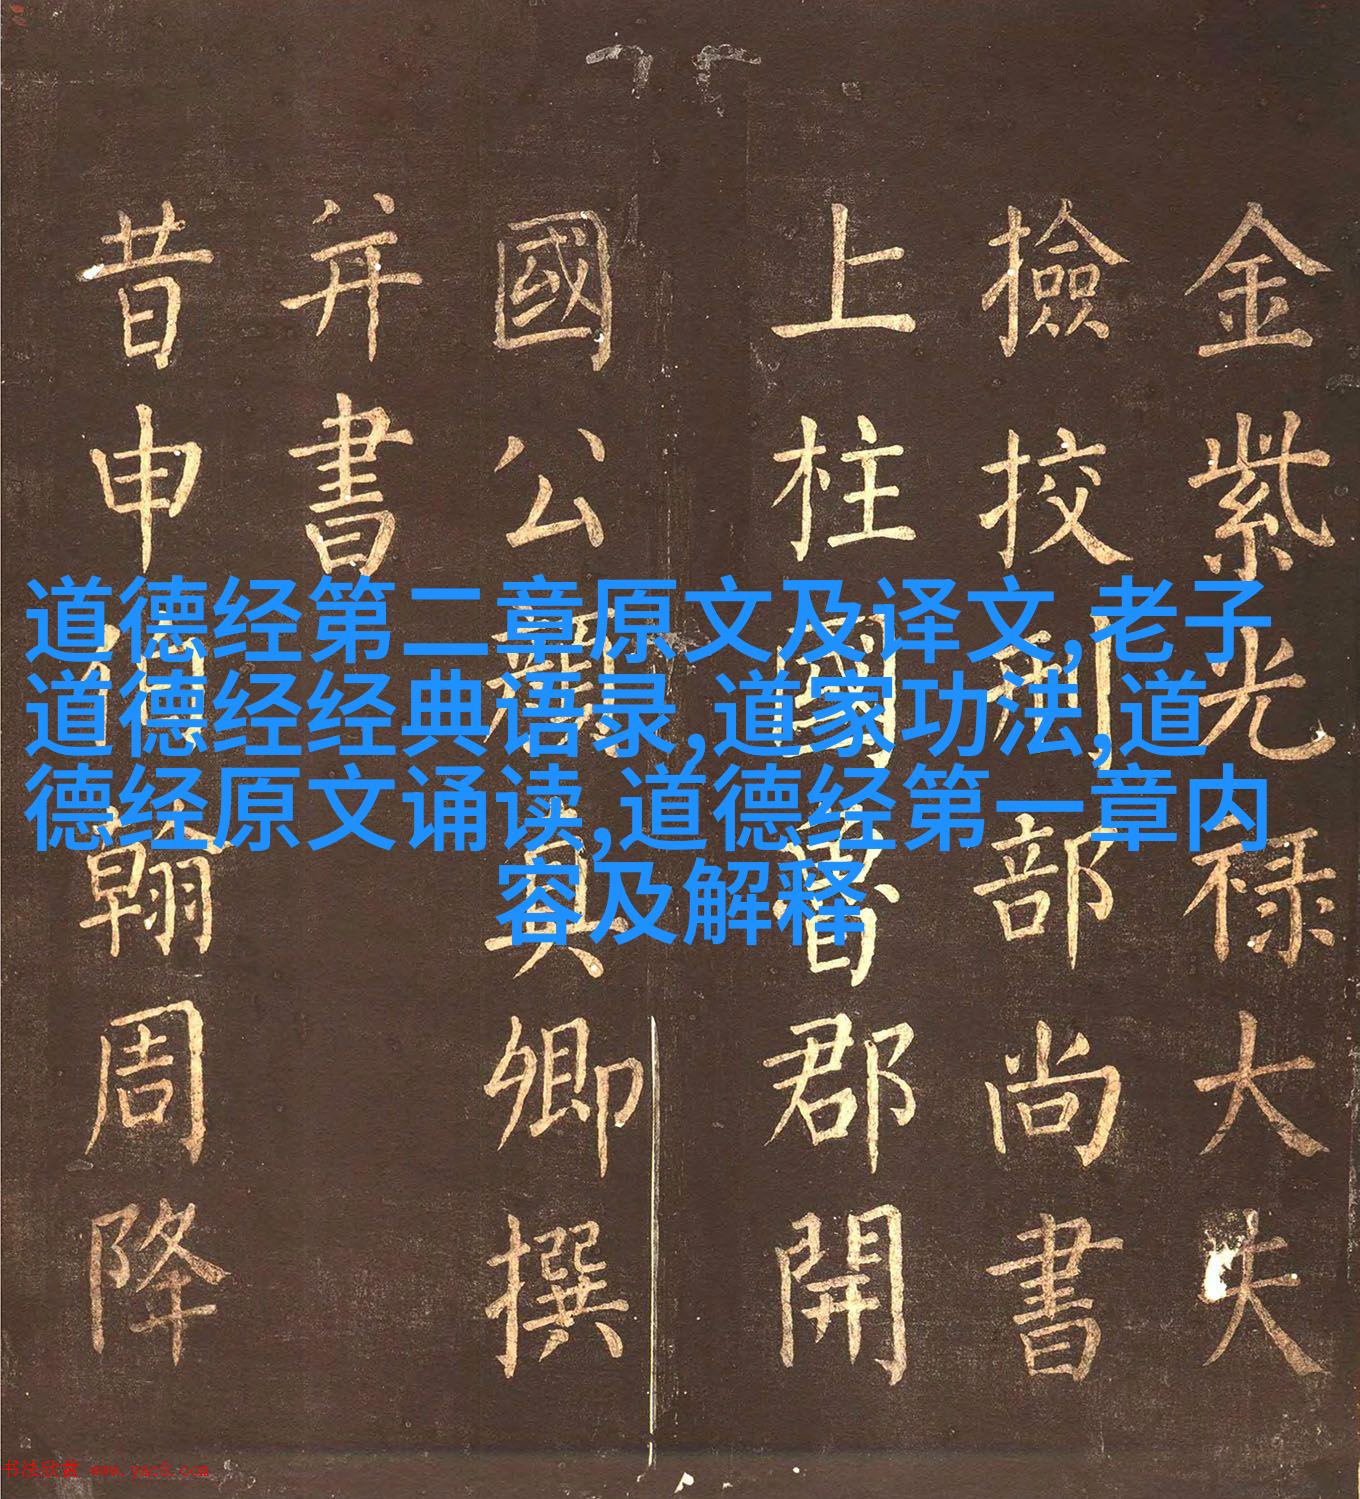 道德经第二章原文及译文,老子
道德经经典语录,道家功法,道
德经原文诵读,道德经第一章内
容及解释
金紫光禄大夫
撿挍刑部尚書
上柱國魯郡開
國公顏真卿撰
并書
昔申伯翰周降
书法欣赏 www.yac8.com